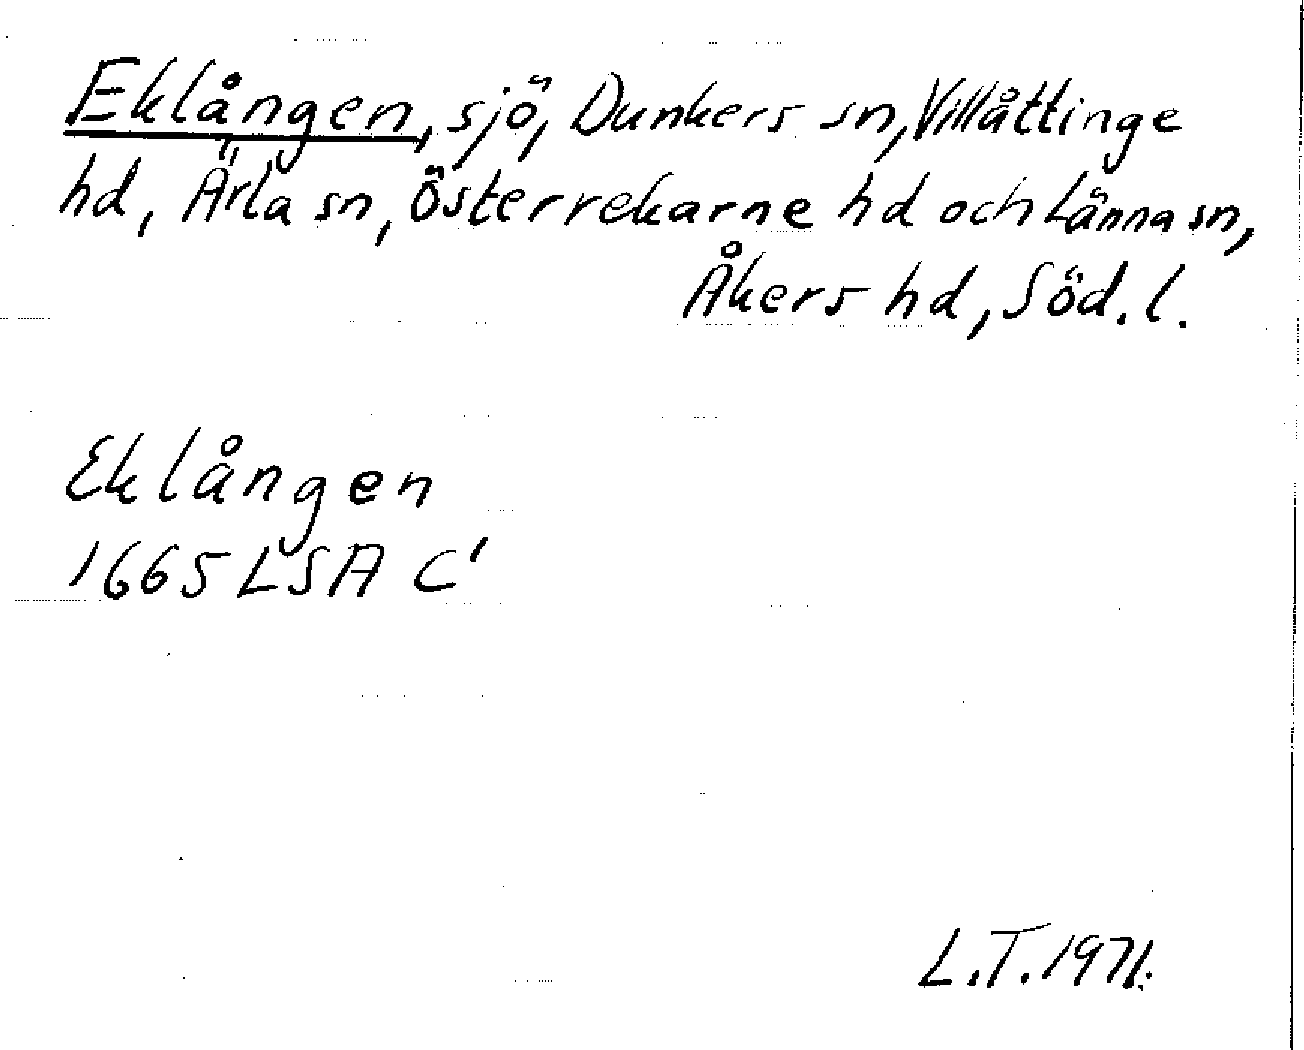 Eklången, sjö, Dunkers sn, Villåttinge
hd, Ärla sn, Österrekarne hd och Länna sn,
Åkers hd, Söd. l.
Eklången
1665 LSA C'
L.T. 1971.